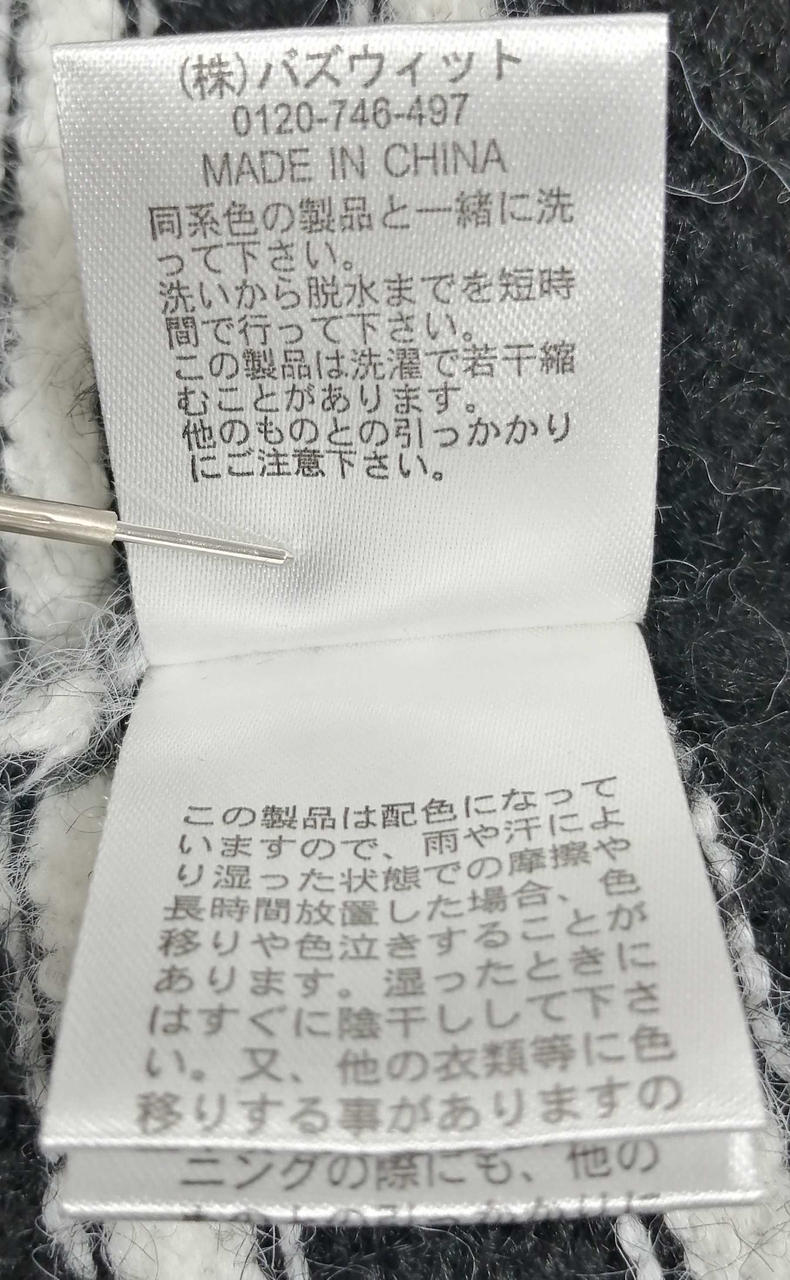 (株)バズウィット
0120-746-497
MADE IN CHINA
同系色の製品と一緒に洗
って下さい。
洗いから脱水までを短時
間で行って下さい。
この製品は洗濯で若干縮
むことがあります。
他のものとの引っかかり
にご注意下さい。
この製品は配色になって
いますので、雨や汗によ
り湿った状態での摩擦や
長時間放置した場合、色
移りや色泣きすることが
あります。湿ったときに
はすぐに陰干しして下さ
い。又、他の衣類等に色
移りする事がありますの
ニングの際にも、他の